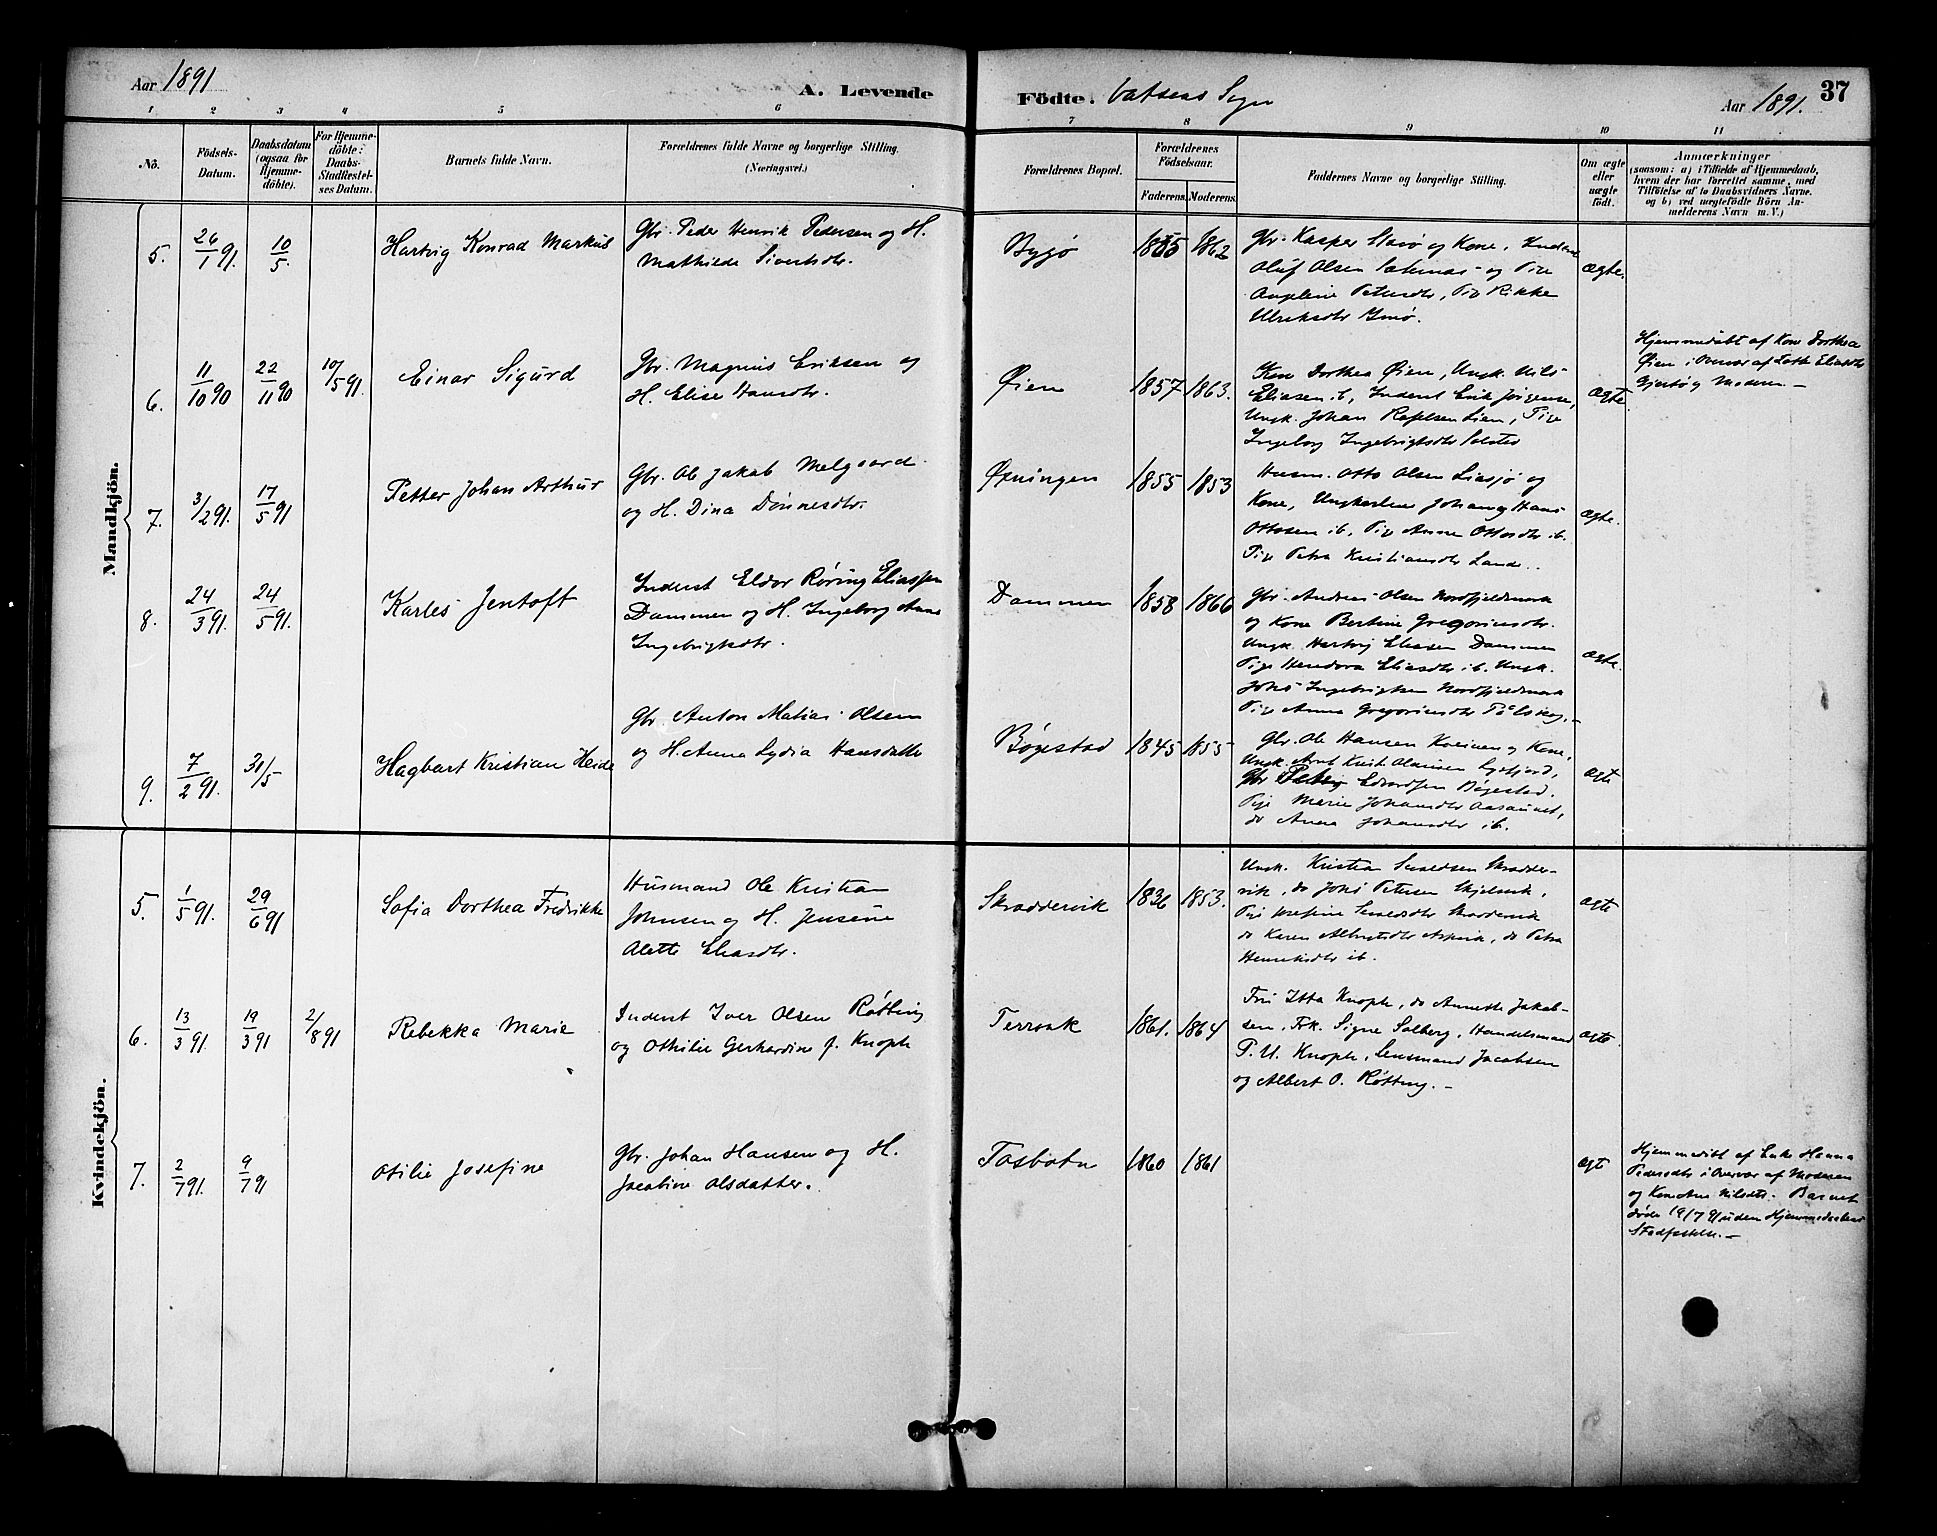 Aar 1891
A. Levende
Födte. Vatsens Sogn
Aar 1891.
37
1 2 3 4 5 6 7 8 9 10 11
No.
Födsels-
Datum.
Daabsdatum
(ogsaa for
Hjemme-
döbte).
For Hjemme-
döbte:
Daabs-
Stadfæstel-
ses Datum.
Barnets fulde Navn.
Forældrenes fulde Navne og borgerlige Stilling.
(Næringsvei.)
Forældrenes Bopæl.
Forældrenes
Födselsaar.
Faderens. Moderens.
Faddernes Navne og borgerlige Stilling.
Om ægte
eller
uægte
födt.
Anmærkninger
(saasom: a) i Tilfælde af Hjemmedaab,
hvem der har forrettet samme, med
Tilföielse af to Daabsvidners Navne.
og b) ved uægtefödte Börn An-
melderens Navn m. V.)
Mandkjön.
5. 26/1 91. 10/5.
Hartvig Konrad Markus
Gbr. Peder Henrik Pedersen og H.
Mathilde Sivertsdtr.
Bygø
1855 1862
Gbr. Kasper og Kone,
Oluf Olsen og Pige
Angeline Petersdtr, Pige Rikke
Ulriksdtr
ægte.
6. 11/10 90 22/11 90 10/5 91.
Einar Sigurd
Gbr. Magnus Eriksen og
H. Elise Hansdtr.
Øien
1857 1863.
Kone Dorthea Øien, Ungk. Nils
Eliasen ib, Inderst Erik Jörgense,
Ungk. Johan Rafelsen Lien, Pige
Ingeborg Ingebrigtsdtr
ægte
Hjemmedöbt af Kone Dorthea
Øien i Overvær af Eliasdtr
og Moderen –
7. 3/2 91. 17/5 91
Petter Johan Arthur
Gbr. Ole Jakob Melgaard
og H. Dina Dönnesdtr.
Øxningen
1855 1853
Husm. Otto Olsen Liasjø og
Kone, Ungkarlene Johan og Hans
Ottosen ib. Pige Anne Ottosdtr ib.
Pige Petra Kristiansdtr Sand..
ægte.
8. 24/3 91. 24/5 91.
Karles Jentoft
Inderst Eldor Røring Eliassen
Dammen og H. Ingeborg Anna
Ingebrigtsdtr.
Dammen
1858 1866
Gbr. Andreas Olsen Nordfjeldmark
og Kone Bertine Gregoriusdtr.
Ungk. Hartvig Eliasen Dammen
Pige Eliasdtr ib. Ungk.
Johs Ingebrigtsen Nordfjeldmark
Pige Anna Gregoriusdtr
ægte.
9. 7/2 91. 31/5
Hagbart Kristian Heide
Gbr. Anton Matias Olsen
og H. Anna Lydia Hansdatte
Bøgestad
1845 1855
Gbr. Ole Hansen og Kone,
Ungk. Olausen
Gbr Edvardsen Bøgestad,
Pige Marie Johansdtr Aasaunet,
do Anna Johansdtr ib.
ægte
Kvindekjön.
5. 1/5 91. 29/6 91
Sofia Dorthea Fredrikke
Husmand Ole Kristian
Johnsen og H. Jensine
Alette Eliasdtr.
Skraddervik
1836 1853.
Ungk. Kristian Skradder-
vik, do Johs Petersen Skjelvik,
Pige Josefine Skraddervik
do Karen Aspvik, do Petra
Henriksdtr ib.
ægte
6. 13/3 91. 19/3 91 2/8 91
Rebekka Marie
Inderst Iver Olsen Røtting
og Othilie Gerhardine f. Knoph
Terraak
1861. 1864
Fru Itta Knoph, do Annette Jakob-
sen, Frk. Signe Solberg, Handelsmand
P. U. Knoph, Lensmand Jacobsen
og Albert O. Røtting. –
ægte
7. 2/7 91. 9/7 91
Otilie Josefine
Gbr. Johan Hansen og H.
Jacobine Olsdatter.
Tosbotn
1860 1861
ægt
Hjemmedöbt af Enke Hanna
Pedersdtr i Overvær af Moderen
og Kone Ane Nilsdtr. Barnet
døde 19/7 91 uden Hjemmedaabens
Stadfæstelse. –